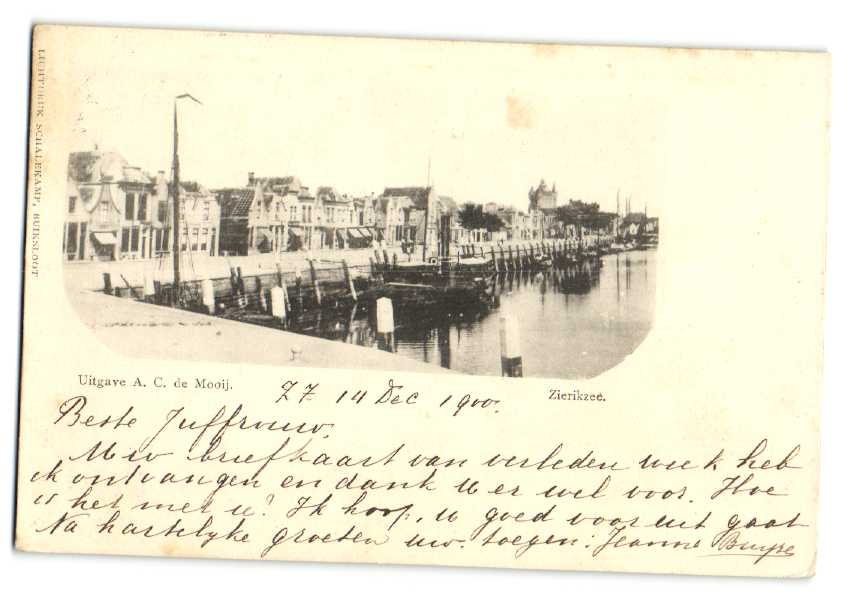 LICHTDRUK SCHALEKAMP, BUIKSLOOT
Uitgave A. C. de Mooij.
ZZ 14 Dec 1900.
Zierikzee.
Beste Juffrouw.
Uw briefkaart van verleden week heb
ik ontvangen en dank U er wel voor. Hoe
is het met u? Ik hoop, u goed vooruit gaat
Na hartelyke groeten uw. toegen: Jeanne Buyze